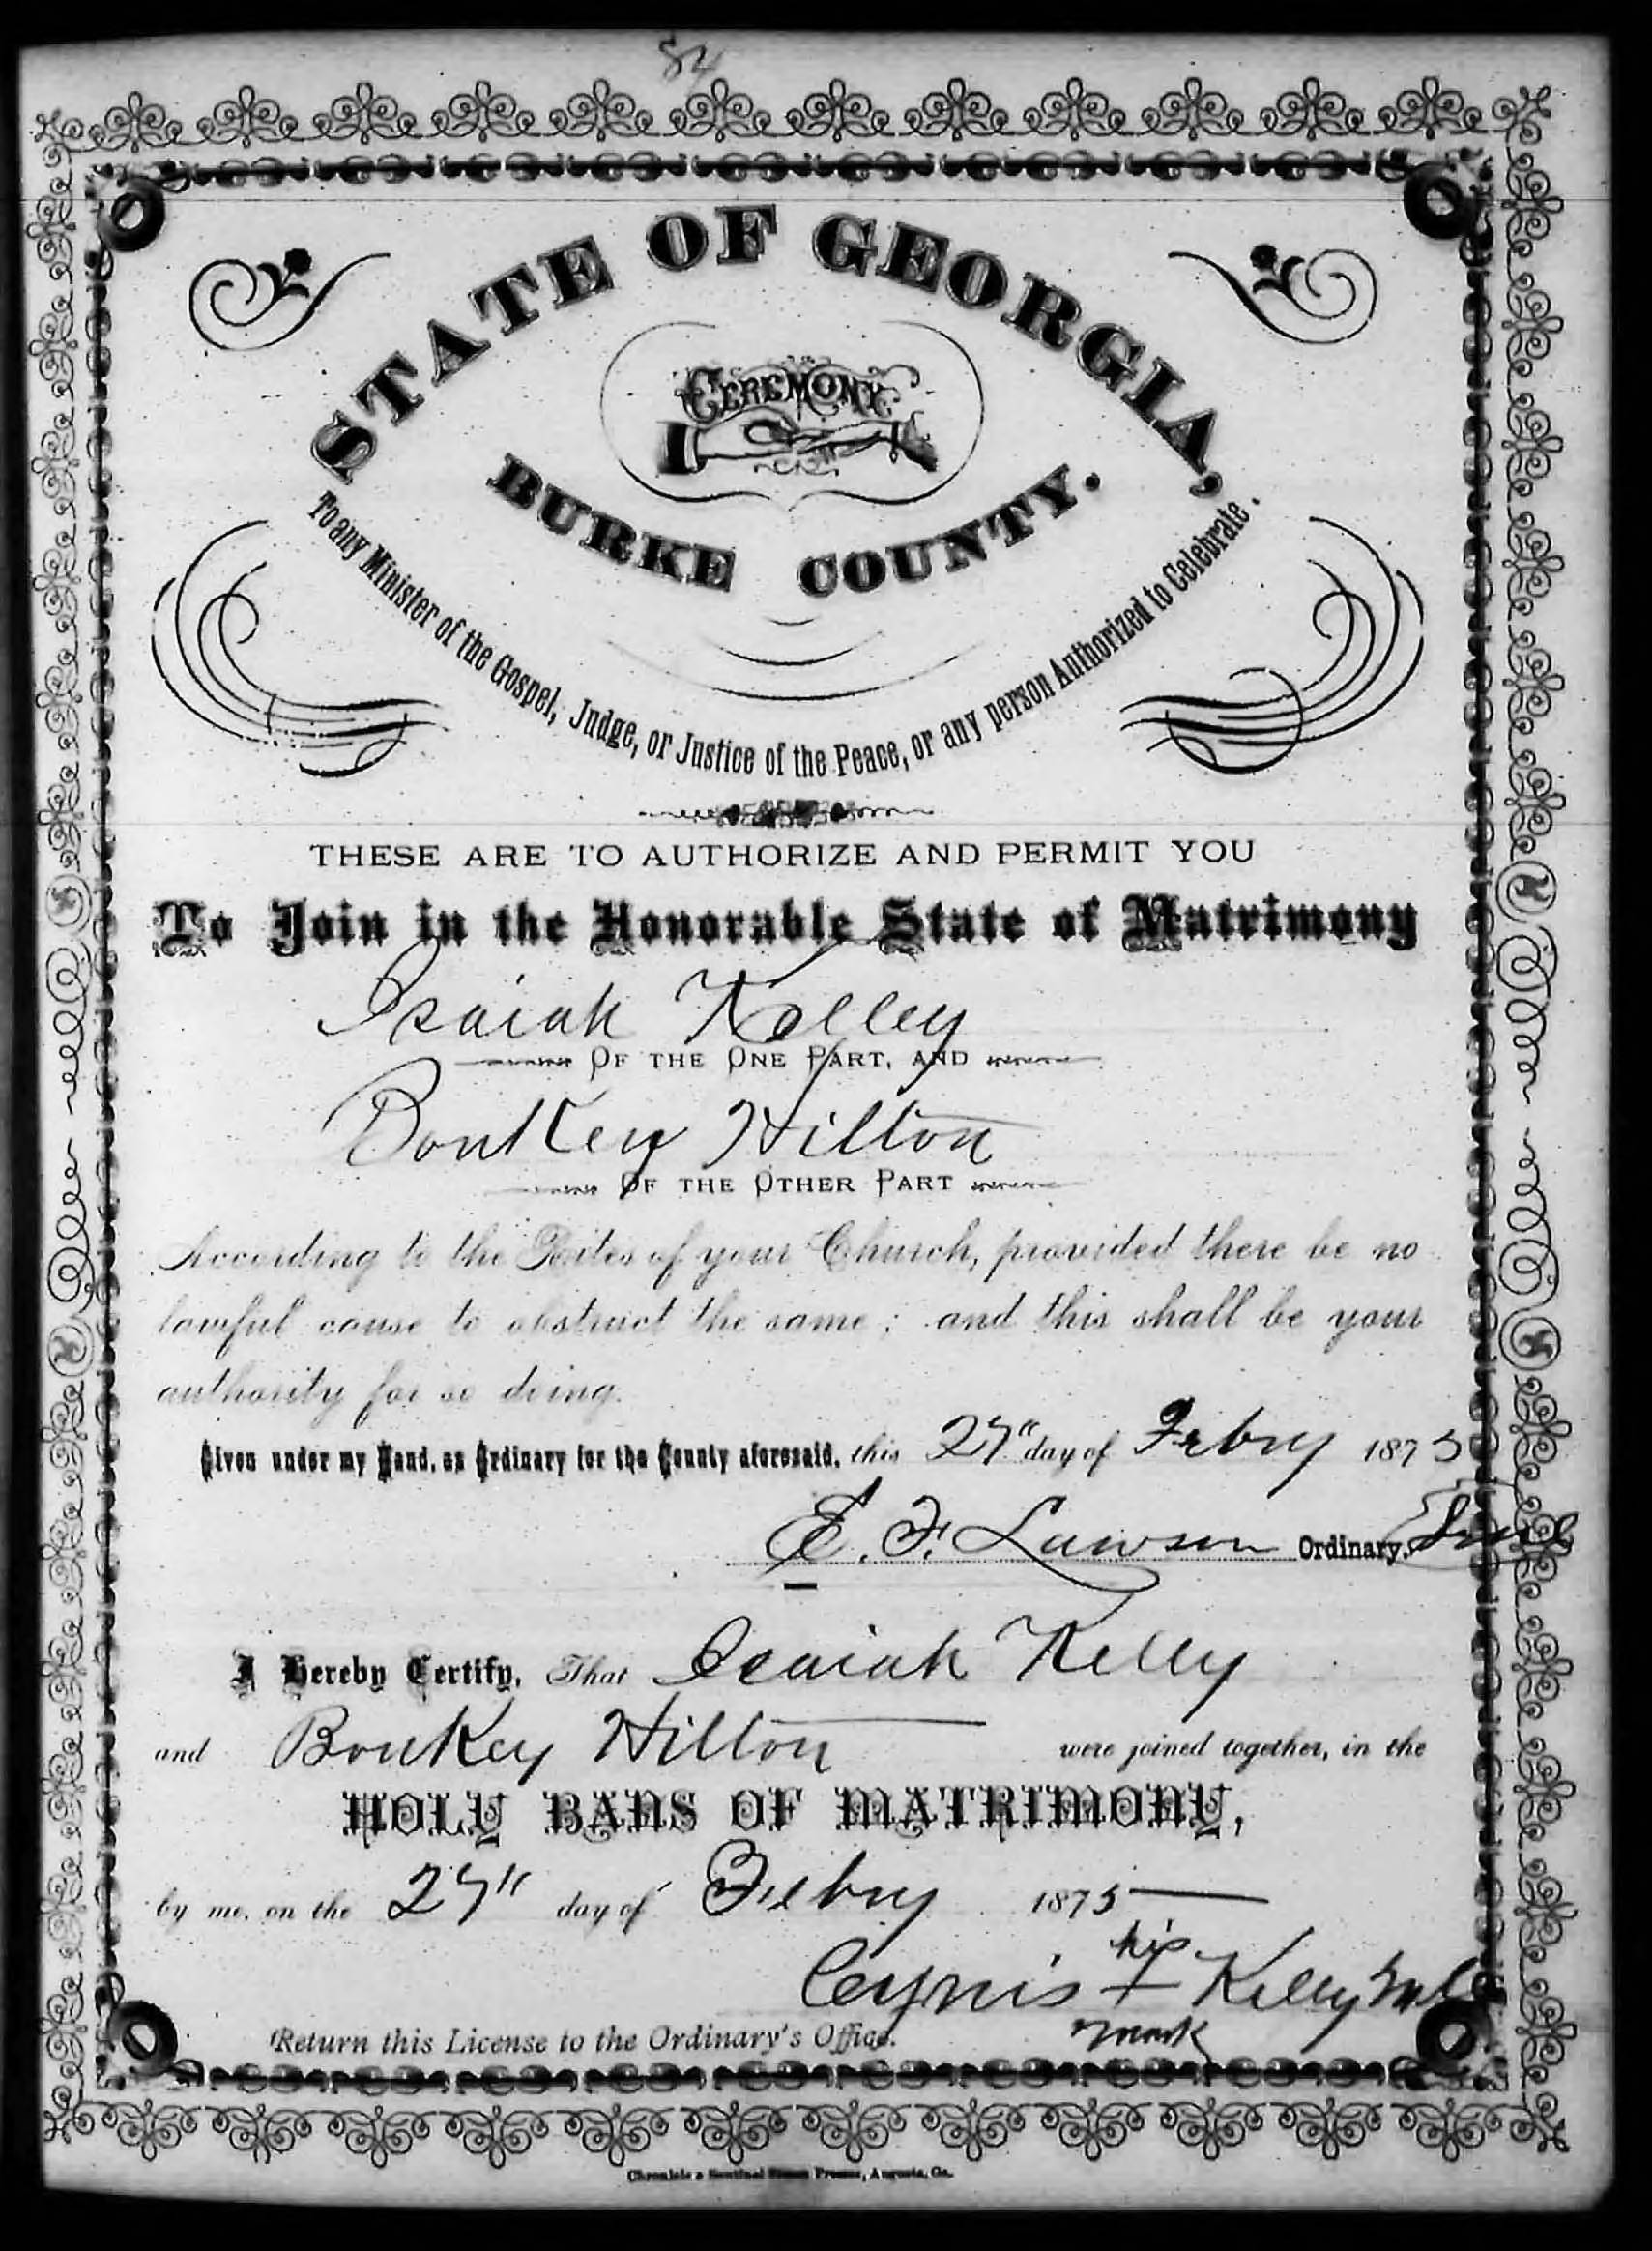 84
STATE OF GEORGIA,
CEREMONY.
BURKE COUNTY.
To any Minister of the Gospel, Judge, or Justice of the Peace, or any person Authorized to Celebrate.
THESE ARE TO AUTHORIZE AND PERMIT YOU
To Join in the Honorable State of Matrimony
Isaiah Kelley
OF THE ONE PART, AND
Boukey Hilton
OF THE OTHER PART
According to the Rites of your Church, provided there be no
lawful cause to obstruct the same; and this shall be your
authority for so doing.
Given under my Hand, as Ordinary for the County aforesaid, this 27" day of Febry 1875
E. F. Lawson Ordinary.
I Hereby Certify, That Isaiah Kelly
and Boukey Hilton were joined together, in the
HOLY BANS OF MATRIMONY,
by me, on the 27" day of Febry 1875
his
+ Kelly
mark
Return this License to the Ordinary's Office.
Chronicle & Sentinel Steam Presses, Augusta, Ga.